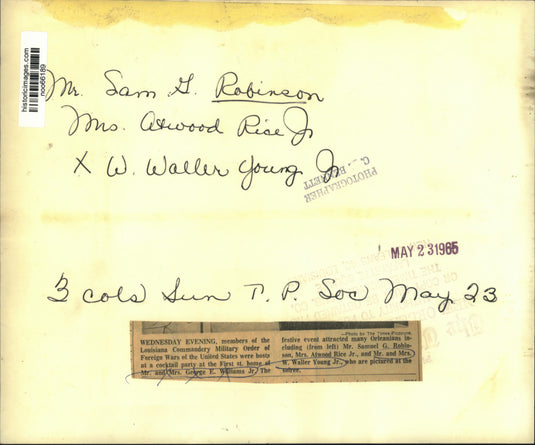 historicimages.com
noo66189
Mr. Sam G. Robinson
Mrs. Atwood Rice Jr
X W. Waller Young Jr
PHOTOGRAPHER
MAY 23 1965
3 cols Sun T. P. Soc May 23
WEDNESDAY EVENING, members of the
Louisiana Commandery Military Order of
Foreign Wars of the United States were hosts
at a cocktail party at the First st. home of
Mr. and Mrs. George E. Williams Jr. The
—Photo by The Times-Picayune.
festive event attracted many Orleanians including
(from left) Mr. Samuel G. Robinson,
Mrs. Atwood Rice Jr., and Mr. and Mrs.
W. Waller Young Jr., who are pictured at the
soiree.